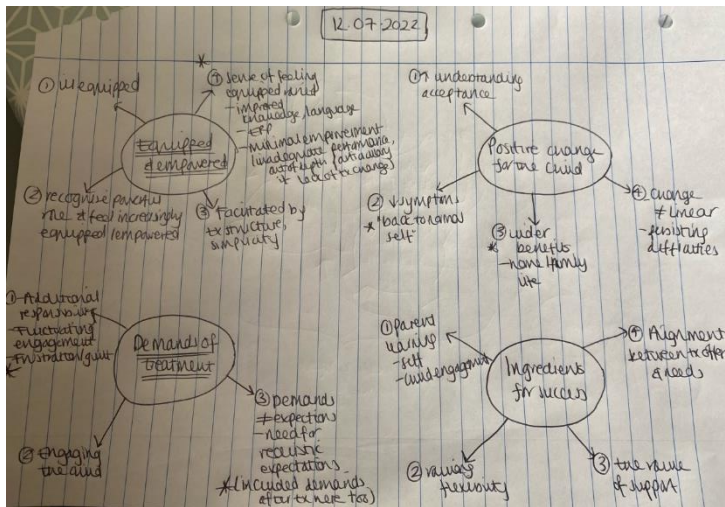 12.07.2022
① ill equipped
④ sense of feeling
equipped varied
- improved
knowledge, language
- ERP
- minimal empowerment
(inadequate performance,
out of depth particularly
if lack of tx change)
Equipped
& empowered
② recognise powerful
role & feel increasingly
equipped/empowered
③ facilitated by
tx structure,
simplicity
① ↑ understanding
acceptance
Positive change
for the child
② ↓ symptoms
* "back to normal
self"
③ wider
* benefits
- home/family
life
④ change
≠ linear
- persisting
difficulties
① Additional
responsibility
- Fluctuating
engagement
- Frustration/guilt
Demands of
treatment
② Engaging
the child
③ demands
≠ expectations
- need for
realistic
expectations
* (included demands
after tx here too)
① parent
learning
- self
- child engagement
Ingredients
for success
② valuing
flexibility
③ the value
of support
④ Alignment
between tx offer
& needs